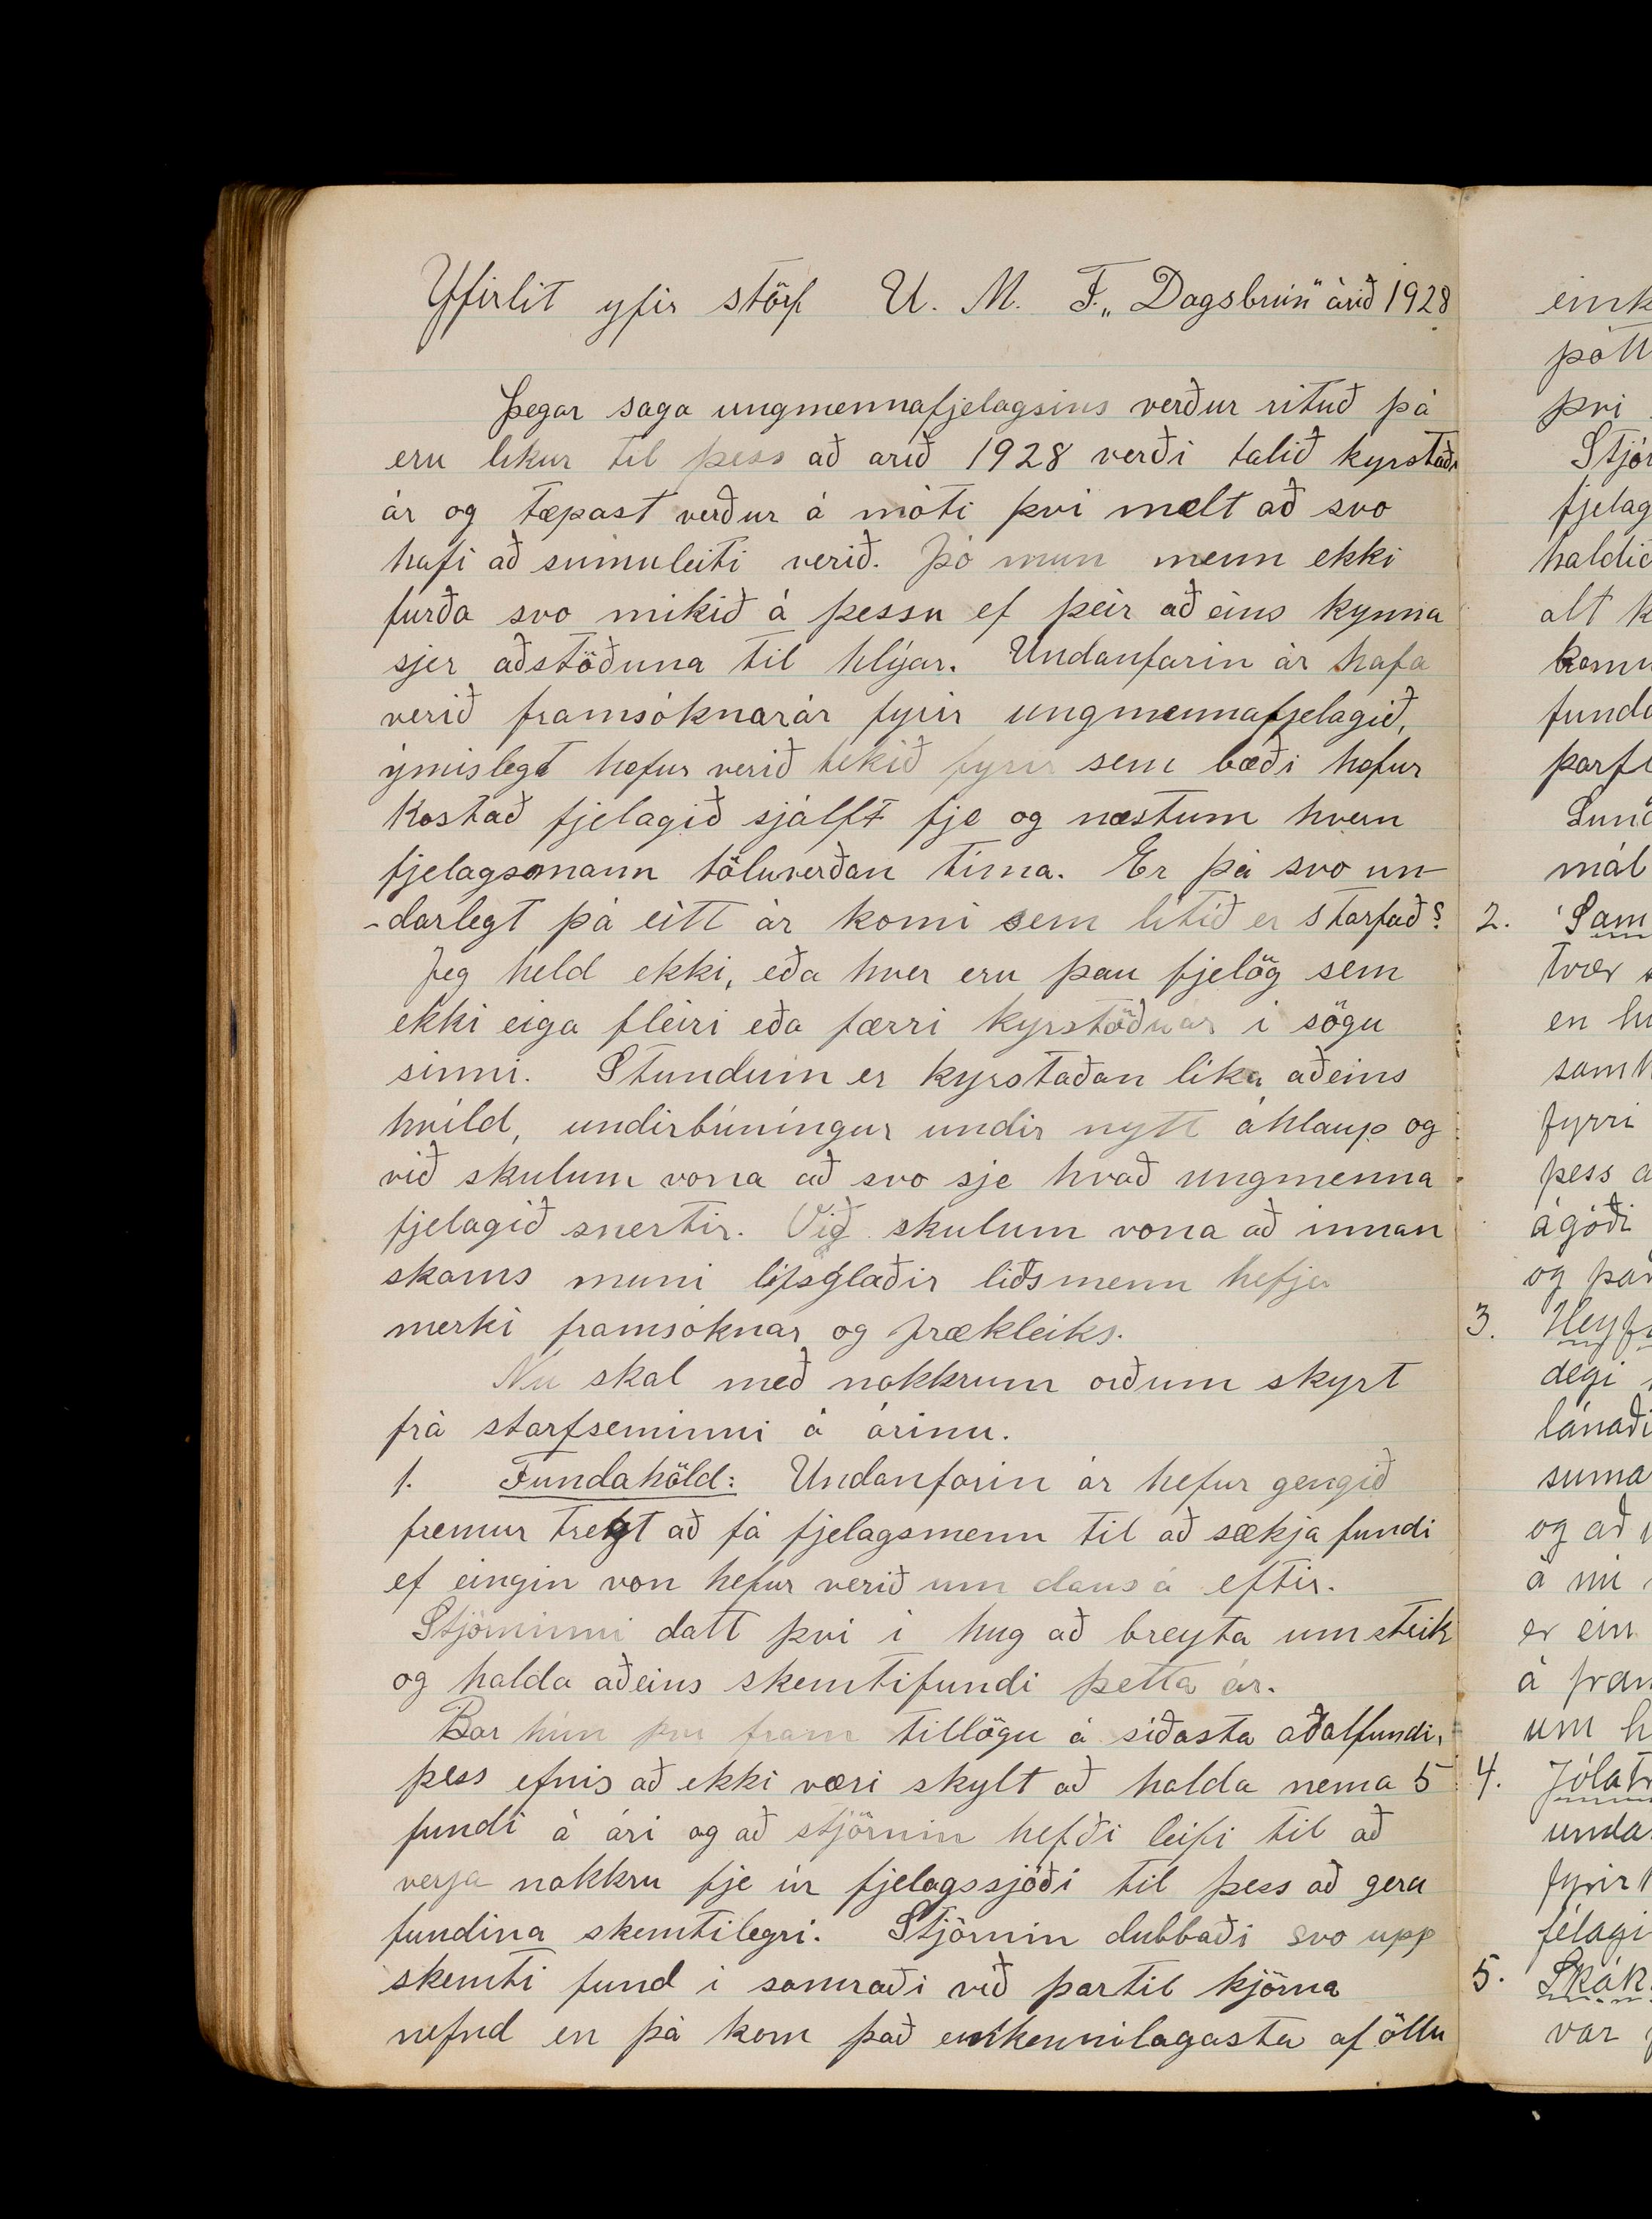 Yfirlit yfir störf U. M. F. „Dagsbrún" árið 1928
Þegar saga ungmennafjelagsins verður rituð þá
eru líkur til þess að árið 1928 verði talið kyrstöðu
ár og tæpast verður á móti því mælt að svo
hafi að sumuleiti verið. Þó mun menn ekki
furða svo mikið á þessu ef þeir að eins kynna
sjer aðstöðuna til hlýar. Undanfarin ár hafa
verið framsóknarár fyrir ungmennafjelagið,
ýmislegt hefur verið tekið fyrir sem bæði hefur
kostað fjelagið sjálft fje og næstum hvern
fjelagsmann töluverðan tíma. Er þá svo un-
-darlegt þá eitt ár komi sem lítið er starfað?
Jeg held ekki, eða hver eru þau fjelög sem
ekki eiga fleiri eða færri kyrstöðuár í sögu
sinni. Stundum er kyrstaðan líka aðeins
hvíld, undirbúningur undir nýtt áhlaup og
við skulum vona að svo sje hvað ungmenna
fjelagið snertir. Við skulum vona að innan
skams muni lífsglaðir liðsmenn hefja
merki framsóknar og frækleiks.
Nú skal með nokkrum orðum skýrt
frá starfseminni á árinu.
1. Fundahöld: Undanfarin ár hefur gengið
fremur tregt að fá fjelagsmenn til að sækja fundi
ef eingin von hefur verið um dans á eftir.
Stjórninni datt því í hug að breyta um steik
og halda aðeins skemtifundi þetta ár.
Bar hún því fram tillögu á síðasta aðalfundi,
þess efnis að ekki væri skylt að halda nema 5
fundi á ári og að stjórnin hefði leifi til að
verja nokkru fje úr fjelagssjóði til þess að gera
fundina skemtilegri. Stjórnin dubbaði svo upp
skemti fund í samráði við þartil kjörna
nefnd en þá kom það einkennilagasta af öllu
2.
3.
4.
5.